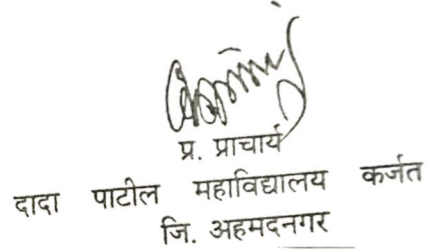 प्र. प्राचार्य
दादा पाटील महाविद्यालय कर्जत
जि. अहमदनगर